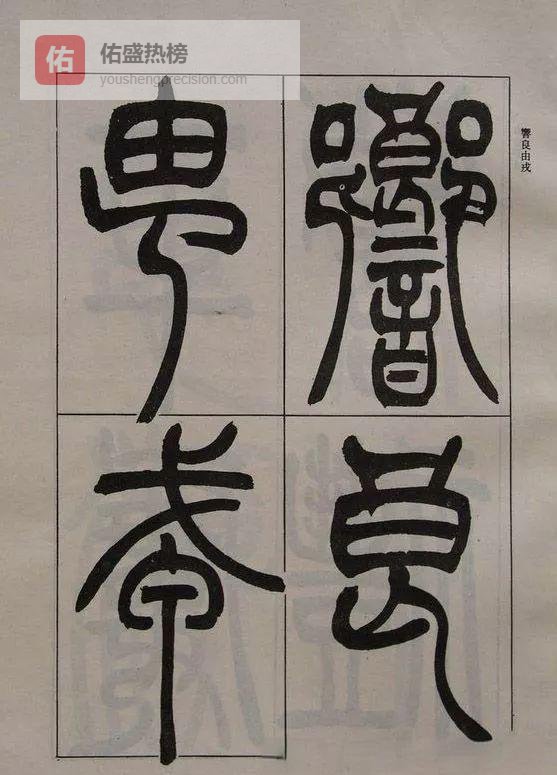 佑
佑盛热榜
youshengprecision.com
響良由戎
響良
由戎